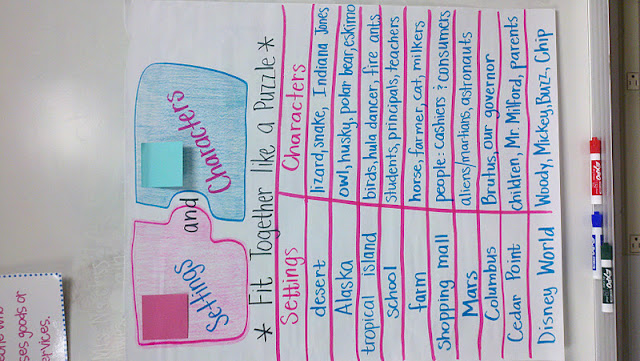 Settings and Characters
* Fit Together like a Puzzle *
Settings Characters
desert lizard, snake, Indiana Jones
Alaska owl, husky, polar bear, eskimo
tropical island birds, hula dancer, fire ants
school students, principals, teachers
farm horse, farmer, cat, milkers
shopping mall people: cashiers & consumers
Mars aliens/martians, astronauts
Columbus Brutus, our governor
Cedar Point children, Mr. Milford, parents
Disney World Woody, Mickey, Buzz, Chip
who
goods or
ervices.
EXPO
EXPO
EXPO